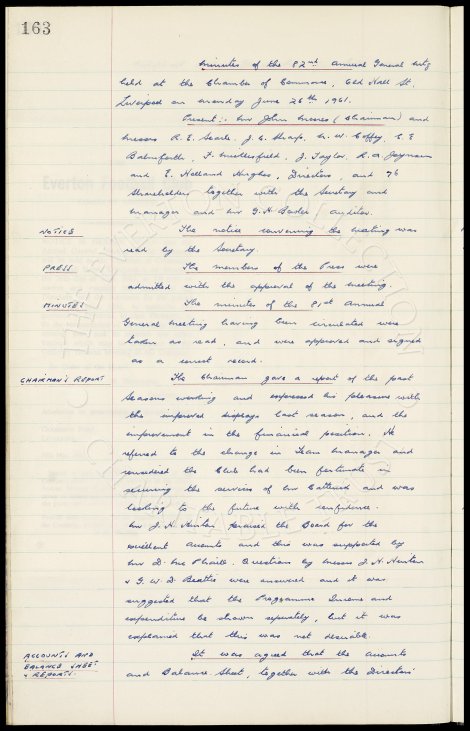 163
Minutes of the 82nd Annual General mtg
held at the Chamber of Commerce, Old Hall St.
Liverpool on Monday June 26th 1961.
Present:- Mr John Moores (Chairman) and
Messrs R. E. Searle, J. C. Sharp, W. Coffey, C E
Balmforth, F. Micklesfield, J. Taylor, R. A. Joynson
and E. Holland Hughes, Directors, and 76
Shareholders together with the Secretary and
Manager and Mr G. H. Auditor.
NOTICE
The notice convening the meeting was
read by the Secretary.
PRESS
The members of the Press were
admitted with the approval of the meeting.
MINUTES
The minutes of the 81st Annual
General Meeting having been circulated were
taken as read, and were approved and signed
as a correct record.
CHAIRMAN'S REPORT
The Chairman gave a report of the past
seasons working and expressed his pleasure with
the improved displays last season, and the
improvement in the financial position. He
referred to the change in Team Manager and
considered the Club had been fortunate in
securing the services of Mr Catterick and was
looking to the future with confidence.
Mr J. H. Newton praised the Board for the
excellent accounts and this was supported by
Mr D. Mc Phaill. Questions by Messrs J. H. Newton
& G. W. D. Beattie were answered and it was
suggested that the Programme Income and
expenditure be shown separately, but it was
explained that this was not desirable.
ACCOUNTS AND
BALANCE SHEET
& REPORTS.
It was agreed that the accounts
and Balance Sheet, together with the Directors'
THE EVERTON COLLECTION